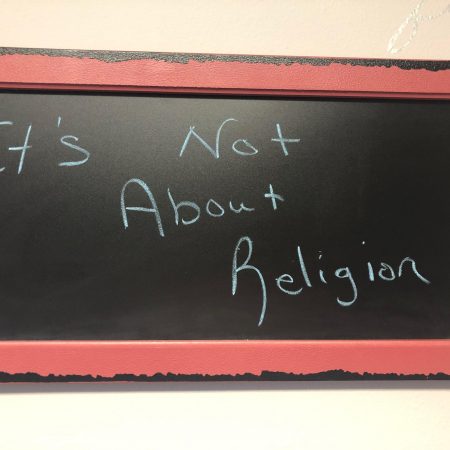 It's Not
About
Religion